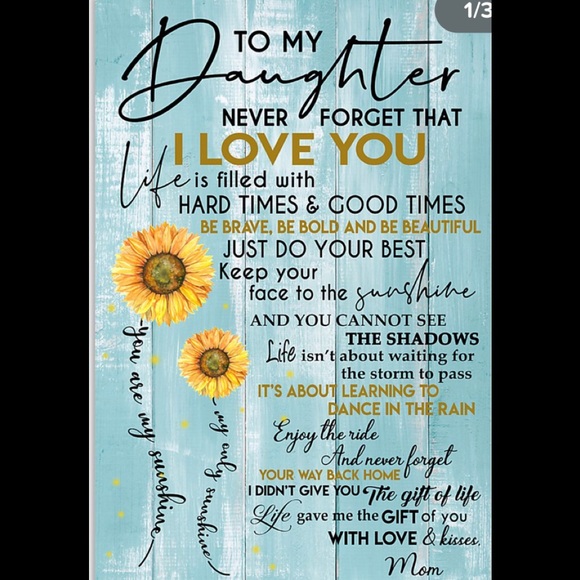 1/3
TO MY
Daughter
NEVER FORGET THAT
I LOVE YOU
Life is filled with
HARD TIMES & GOOD TIMES
BE BRAVE, BE BOLD AND BE BEAUTIFUL
JUST DO YOUR BEST
Keep your
face to the sunshine
AND YOU CANNOT SEE
THE SHADOWS
Life isn't about waiting for
the storm to pass
IT'S ABOUT LEARNING TO
DANCE IN THE RAIN
Enjoy the ride
And never forget
YOUR WAY BACK HOME
I DIDN'T GIVE YOU The gift of life
Life gave me the GIFT of you
WITH LOVE & kisses,
Mom
you are my sunshine
my only sunshine